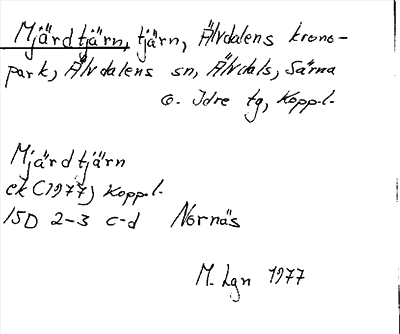 Mjärdtjärn, tjärn, Älvdalens krono-
park, Älvdalens sn, Älvdals, Särna
o. Idre tg, Kopp.l.
Mjärdtjärn
ek (1977) Kopp.l.
15D 2-3 c-d Nornäs
M. Lgn 1977